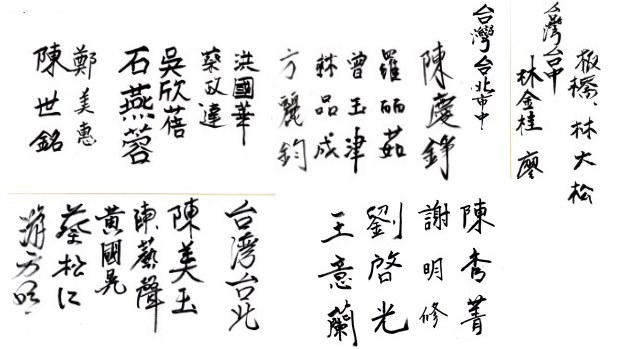 板橋、林大松
台灣台中
林金桂 廖
台灣台北市中
陳慶錚
羅丽茹
曾玉津
林品成
方麗鈞
洪國華
蔡政達
吳欣蓓
石燕蓉
鄭美惠
陳世銘
陳秀菁
謝明修
劉啓光
王意蘭
台灣台北
陳美玉
陳藝聲
黃國晃
蔡松仁